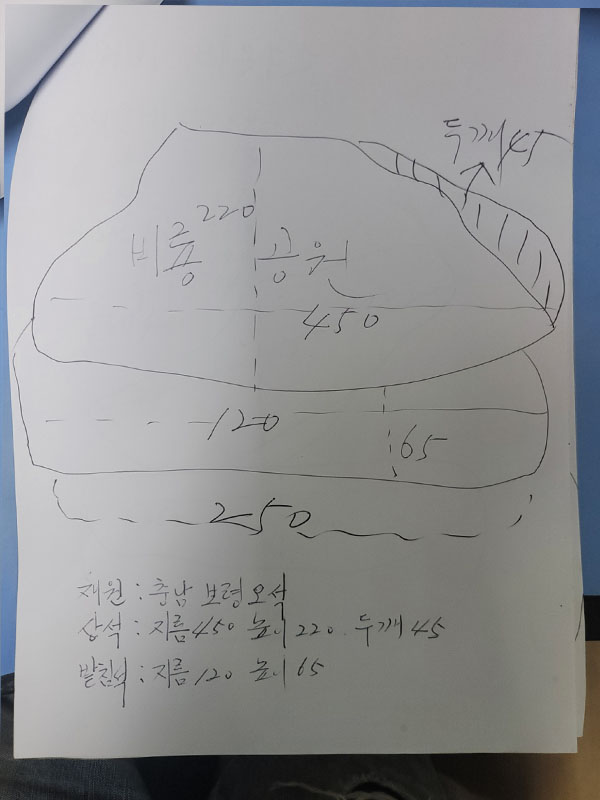 두께 45
220
비룡 공원
450
120
65
250
채원 : 충남 보령오석
상석 : 지름 450 높이 220. 두께 45
받침석 : 지름 120 높이 65